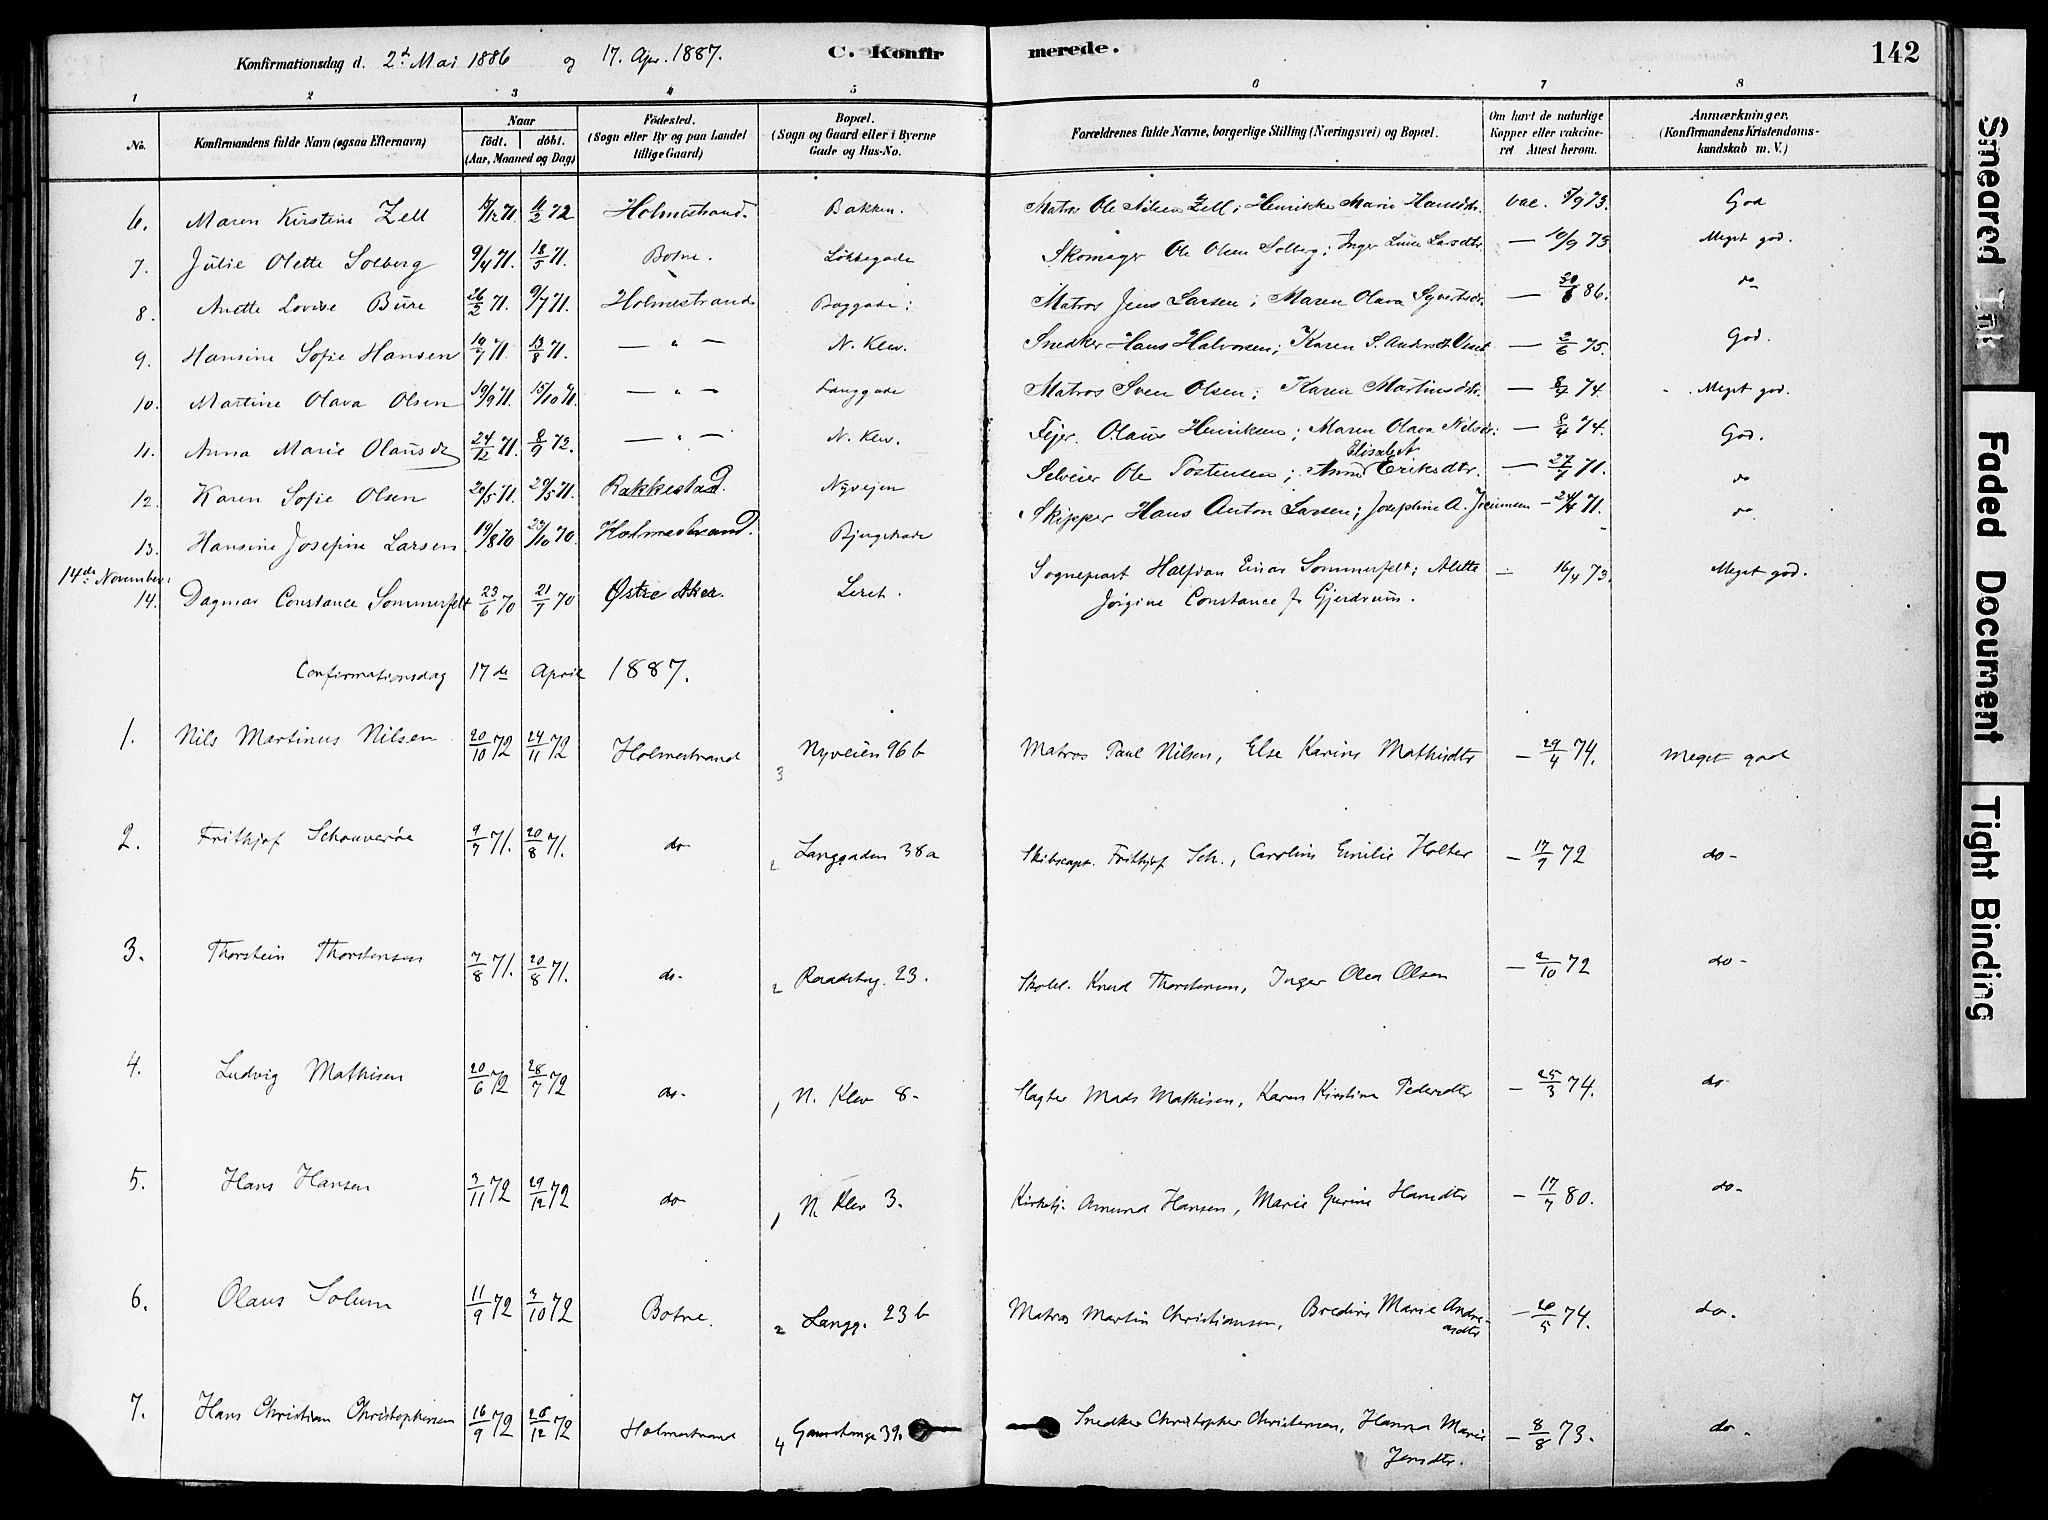 Konfirmationsdag d. 2d Mai 1886 og 17. Apr. 1887. C. Konfirmerede. 142
1 2 3 4 5 6 7 8
No. Konfirmandens fulde Navn (ogsaa Efternavn) Naar født. døbt. (Aar, Maaned og Dag) Fødested. (Sogn eller By og paa Landet tillige Gaard) Bopæl. (Sogn og Gaard eller i Byerne Gade og Hus-No. Forældrenes fulde Navne, borgerlige Stilling (Næringsvei) og Bopæl. Om havt de naturlige Kopper eller vakcineret Attest herom. Anmærkninger. (Konfirmandens Kristendomskundskab m. V.)
6. Maren Kirstine Zell 71. 11/2 72 Holmestrand. Bakken. Matros Ole Nilsen Zell; Henrikke Marie Hansdtr. vac. 5/9 73. God
7. Julie Olette Solberg 9/4 71. 18/5 71. Botne. Løkkegade Skomager Ole Olsen Solberg; Inger Larsdtr. — 10/9 73 Meget god.
8. Anette Lovise Bure 26/2 71. 9/7 71. Holmestrand Baggade: Matros Jens Larsen; Maren Olava Syvertsdr. — 30/6 86. do
9. Hansine Sofie Hansen 19/7 71. 13/8 71. — " — N. Klev. Snedker Hans Halvorsen; Karen S. Andersdt. — 2/6 75. God.
10. Martine Olava Olsen 19/9 71. 15/10 71. — " — Langgade Matros Sven Olsen; Karen Martinsdtr. — 74. Meget god.
11. Anna Marie Olausdr 24/12 71. 8/9 72. — " — N. Klev. Fejer. Olaus Henriksen; Maren Olava Nilsdr: — 8/4 74. God.
12. Karen Sofie Olsen 20/5 71. 29/5 71. Rakkestad. Nyvejen Selveier Ole Tostensen; Anne Elisabet Eriksdtr. — 27/7 71. do
13. Hansine Josefine Larsen 19/8 70 23/10 70. Holmestrand. Bjergstrade Skipper Hans Anton Larsen; Josephine A. — 24/4 71. do
14de November:
14. Dagmar Constance Sommerfelt 23/6 70 21/7 70 Østre Aker. Leret. Sogneprest Halfdan Einar Sommerfelt; Alette — 16/4 73. Meget god.
Jørgine Constance f. Gjerdrum.
Confirmationsdag 17de April 1887.
1. Nils Martinus Nilsen 20/10 72 24/11 72 Holmestrand 3 Nyveien 96b Matros Paul Nilsen, Else Karine Mathisdtr — 29/4 74. Meget god
2. Frithjof Schouverøe 9/7 71. 20/8 71. do 2 Langgaden 38a Skibscapt. Frithjof Sch., Caroline Emilie Holter — 17/9 72 do-
3. Thorstein Thorstensen 7/8 71. 20/8 71. do- 2 Raadstug. 23. Skolel. Knud Thorstensen, Inger Olea Olsen — 2/10 72 do-
4. Ludvig Mathisen 20/6 72 28/7 72 do- 1 N. Klev 8- Slagter Mads Mathisen, Karen Kirstine Pedersdtr — 25/3 74. do-
5. Hans Hansen 3/11 72 29/12 72 do 1 N. Klev 3. Kirketj. Amund Hansen, Marie Gurine Hansdtr — 17/7 80. do-
6. Olaus Solum 11/9 72 3/10 72 Botne. 2 Langg. 23b Matros Martin Christiansen, Bredine Marie Andre-
asdtr — 26/5 74. do-
7. Hans Christian Christophersen 16/9 72 26/12 72 Holmestrand 4 39. Snedker Christopher Christensen, Hanna Marie — 8/8 73. do-
Jensdtr.
Smeared Ink
Faded Document
Tight Binding